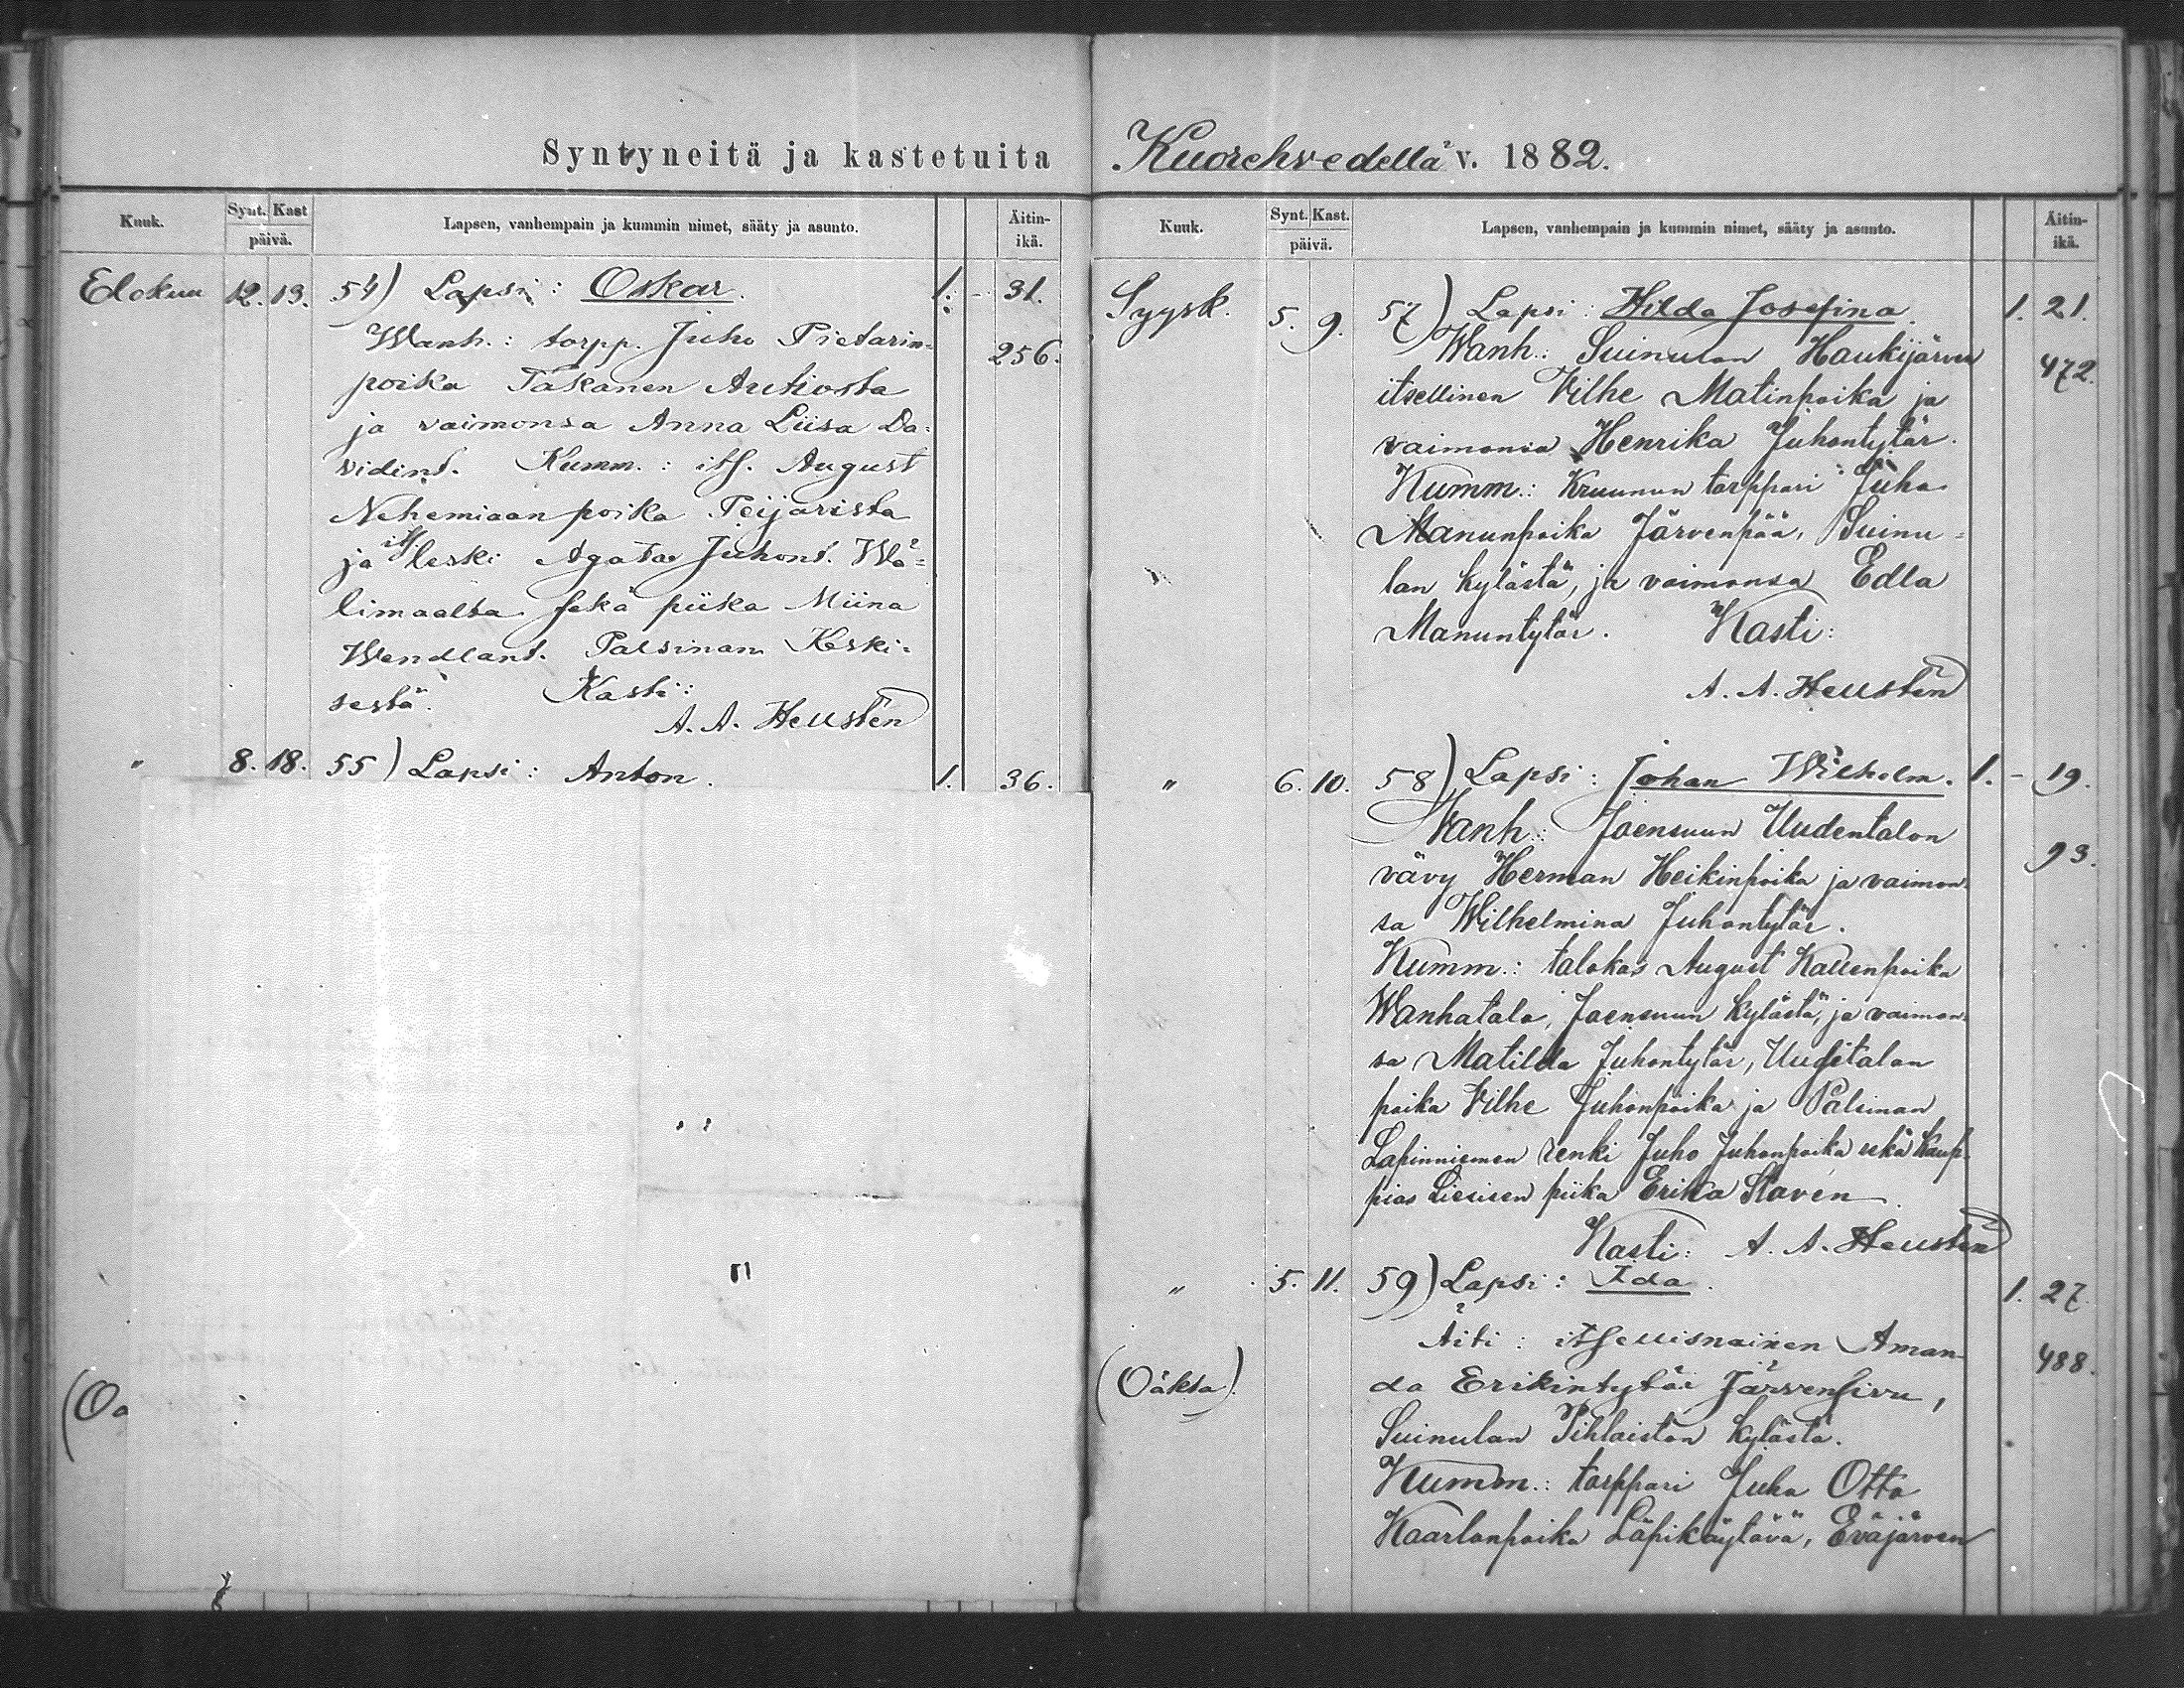 Syntyneitä ja kastetuita
Kuuk. Synt. Kast päivä. Lapsen, vanhempain ja kummin nimet, sääty ja asunto. Äitin-ikä.
Elokuu 12. 13. 54) Lapsi: Oskar. 1. - 31.
Wanh.: torpp. Juho Pietarin- 256.
poika Takanen Autiosta
ja vaimonsa Anna Liisa Da-
vidint. Kumm.: its. August
Nehemiaanpoika Teijarista
ja its leski Agata Juhont. Wä-
limaalta sekä piika Miina
Wendlant. Palsinan Keski-
sestä. Kasti:
A. A. Heustén
" 8. 18. 55) Lapsi: Anton. 1. 36.
(Oa
Kuorehvedellä v. 1882.
Kuuk. Synt. Kast. päivä. Lapsen, vanhempain ja kummin nimet, sääty ja asunto. Äitin-ikä.
Syysk. 5. 9. 57) Lapsi: Hilda Josefina. 1. 21.
Wanh.: Suinulan Haukijärven 472.
itsellinen Vilhe Matinpoika ja
vaimonsa Henrika Juhontytär.
Kumm.: Kruunun torppari Juho
Manunpoika Järvenpää, Suinu-
lan kylästä, ja vaimonsa Edla
Manuntytär. Kasti:
A. A. Heustén
" 6. 10. 58) Lapsi: Johan Wilhelm. 1. - 19.
Vanh.: Joensuun Uudentalon 93.
vävy Herman Heikinpoika ja vaimon-
sa Wilhelmina Juhontytär.
Kumm.: talokas August Kallenpoika
Wanhatalo, Joensuun kylästä, ja vaimon-
sa Matilda Juhontytär, Uuditalon
poika Vilhe Juhonpoika ja Palsinan
Lapinniemen renki Juho Juhonpoika sekä Kaup-
pias Liesisen piika Erika Slaven.
Kasti: A. A. Heustén
" 5. 11. 59) Lapsi: Ida. 1. 27.
Äiti: itsellisnainen Aman- 488.
(Oäkta). da Erikintytär Järvensivu,
Suinulan Pihlaiston kylästä.
Kumm.: torppari Juha Otto
Kaarlonpoika Läpikäytävä, Eväjärven